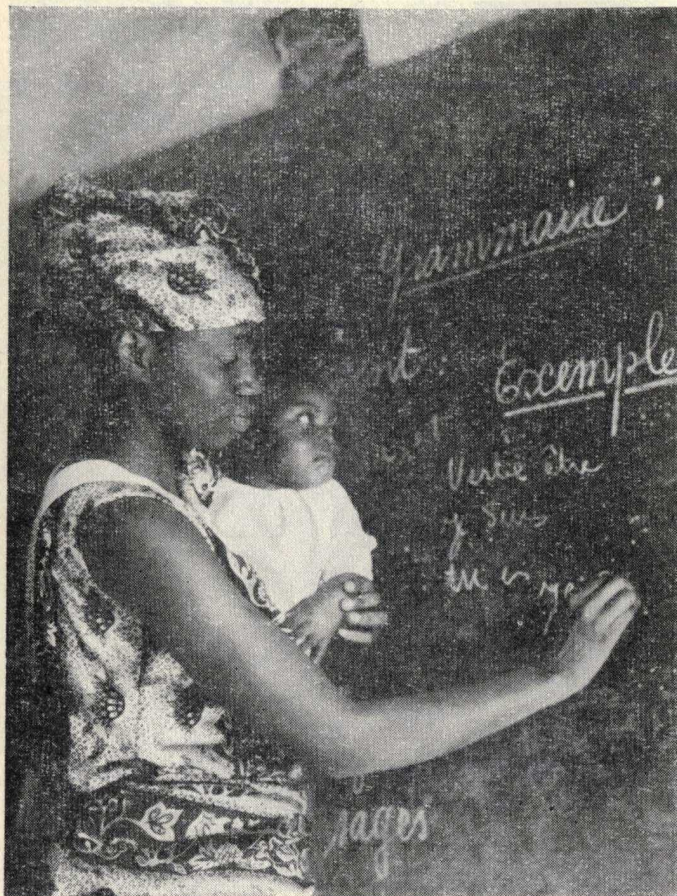 grammaire :
nt : Exemple
Verbe être
je suis
tu es
sages